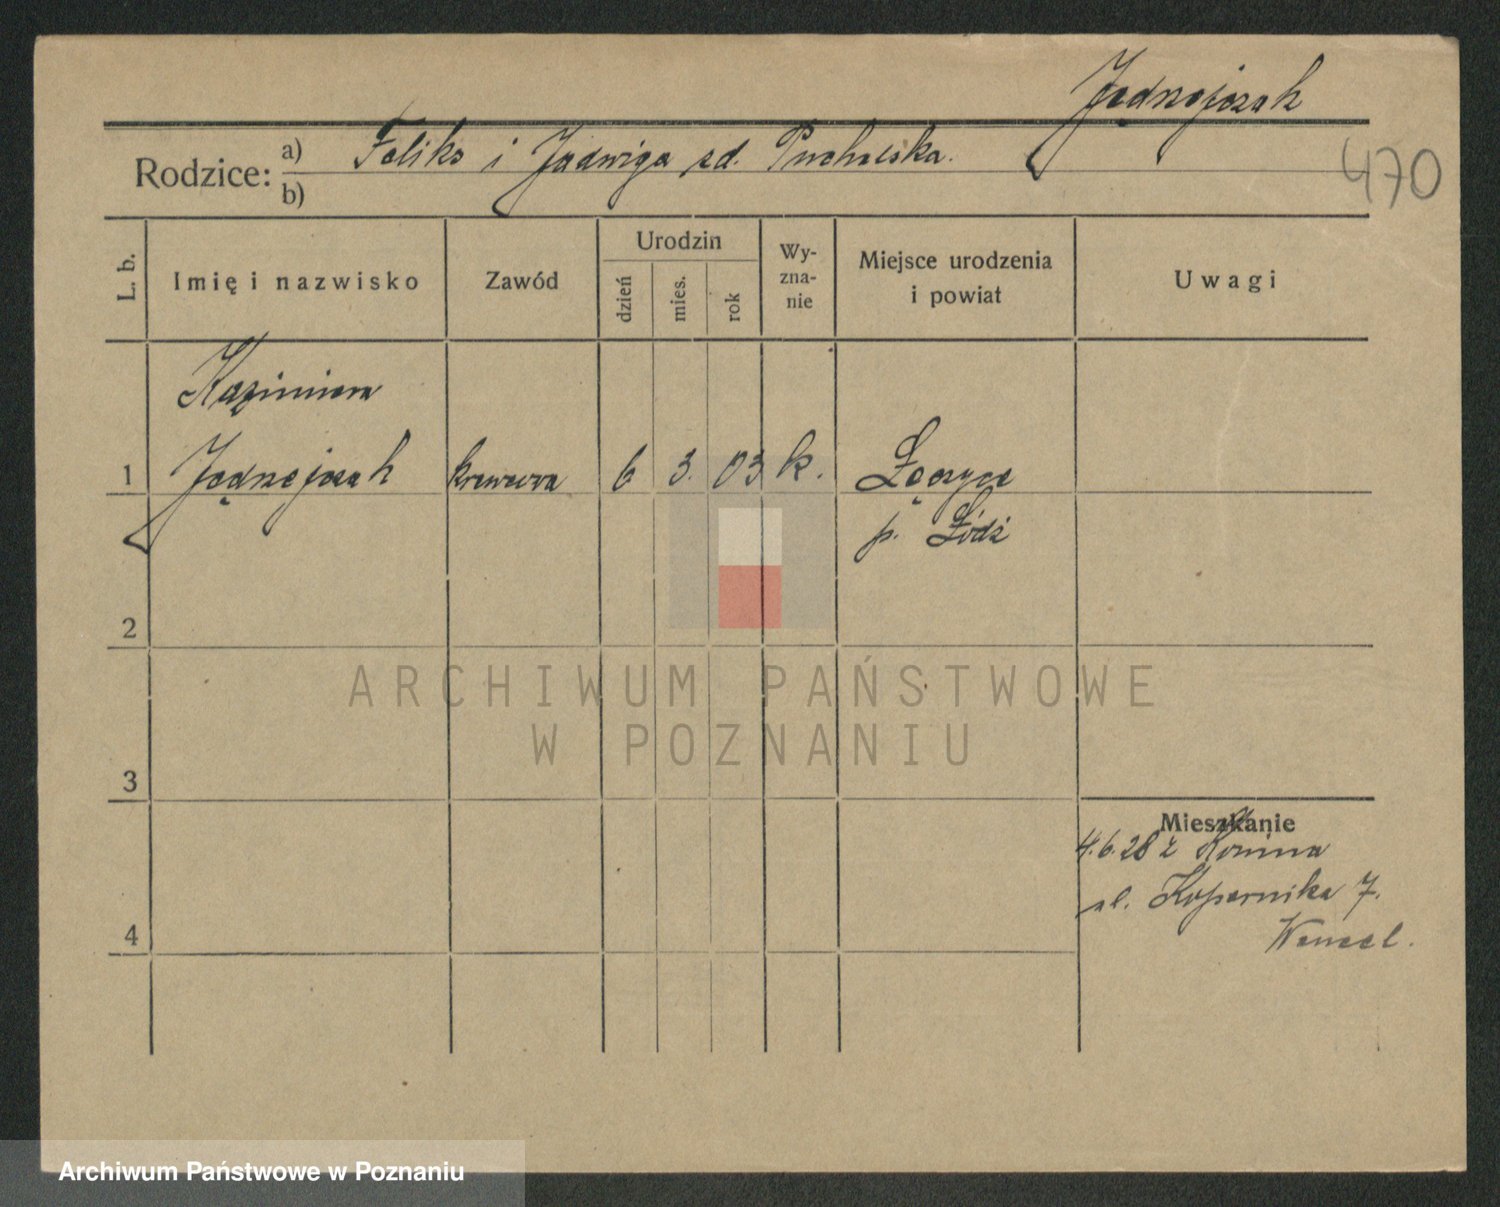 Jędrzejczak
470
Rodzice: a) Feliks i Jadwiga zd. Pucholska.
b)
L. b.
Imię i nazwisko
Zawód
Urodzin
dzień
mies.
rok
Wy-
zna-
nie
Miejsce urodzenia
i powiat
Uwagi
Kazimiera
1 Jędrzejczak krawcowa 6 3. 03 k. Łęczyce
p. Łódź
2
3
4
Mieszkanie
4.6.28 z Konina
ul. Kopernika 7.
Wencel.
ARCHIWUM PAŃSTWOWE
W POZNANIU
Archiwum Państwowe w Poznaniu